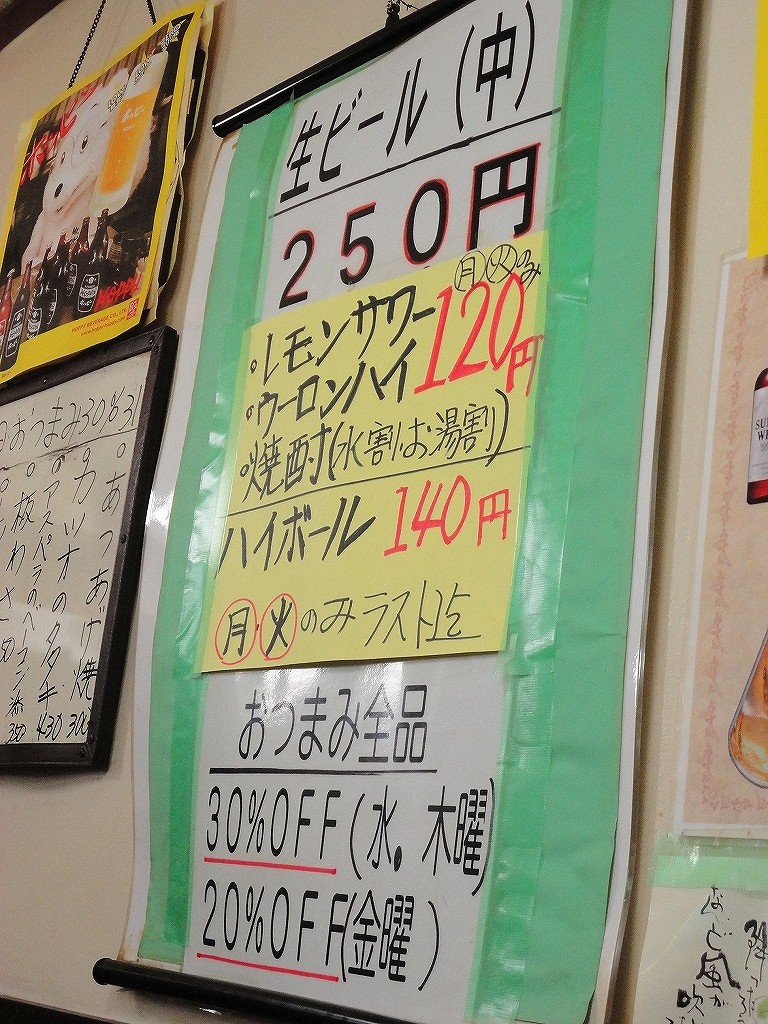 生ビール（中）
250円
月火のみ
・レモンサワー
・ウーロンハイ
120円
・焼酎(水割りお湯割)
ハイボール 140円
月・火のみラストまで
おつまみ全品
30%OFF(水。木曜)
20%OFF(金曜)
ホッピー
HOPPY
HOPPY BEVERAGE CO., LTD
おつまみ30%
・あつあげ焼 300
・カツオのタタキ 430
・アスパラのベーコン
など風が
吹い